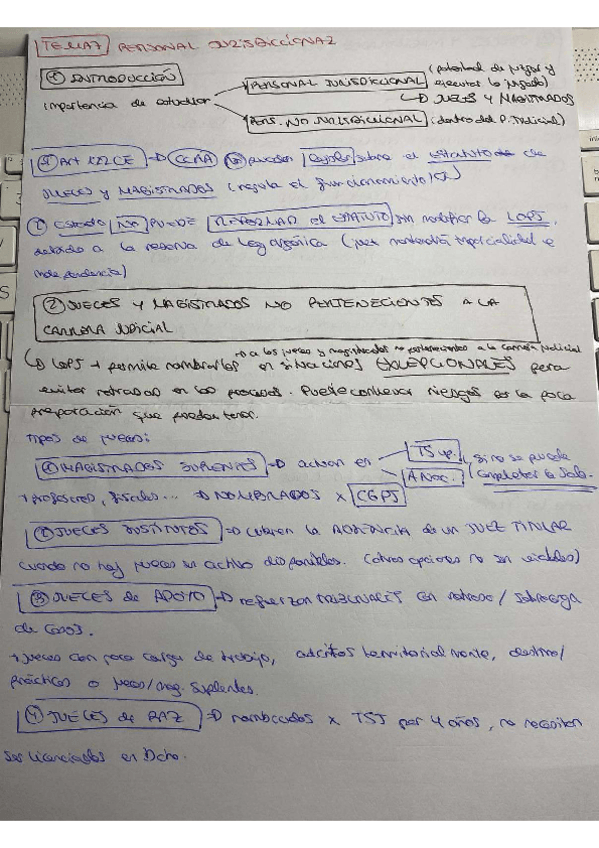 TEMA 7 PERSONAL JURISDICCIONAL
① INTRODUCCIÓN
PERSONAL JURISDICCIONAL (potestad de juzgar y ejecutar lo juzgado)
↳ JUECES Y MAGISTRADOS
importancia de estudiar
PERS. NO JURISDICCIONAL (dentro del P. Judicial)
Art CE → CCAA pueden legislar sobre el estatuto de
JUECES y MAGISTRADOS (regula el funcionamiento)
Estado NO PUEDE REFORMAR el ESTATUTO sin modificar la LOPJ,
debido a la reserva de Ley orgánica (juez imparcialidad e
independencia)
② JUECES Y MAGISTRADOS NO PERTENECIENTES A LA
CARRERA JUDICIAL
a los jueces y magistrados no pertenecientes a la carrera judicial
↳ LOPJ → permite nombrarlos en situaciones EXCEPCIONALES para
evitar retrasos en los procesos. Puede conllevar riesgos es la poca
preparación que pueden tener.
Tipos de jueces:
① MAGISTRADOS SUPLENTES → actúan en TS up. A Nac. (si no se puede completar la sala.
+ profesores, fiscales... → NOMBRADOS x CGPJ
② JUECES SUSTITUTOS → cubren la AUSENCIA de un JUEZ TITULAR
cuando no hay jueces en activo disponibles. (otras opciones no son viables)
③ JUECES de APOYO → refuerzan TRIBUNALES con retraso / sobrecarga
de casos.
+ jueces con poca carga de trabajo, adscritos territorialmente, destino/
prácticas o jueces/mag. suplentes.
④ JUECES de PAZ → nombrados x TSJ por 4 años, no necesitan
ser licenciados en Dcho.